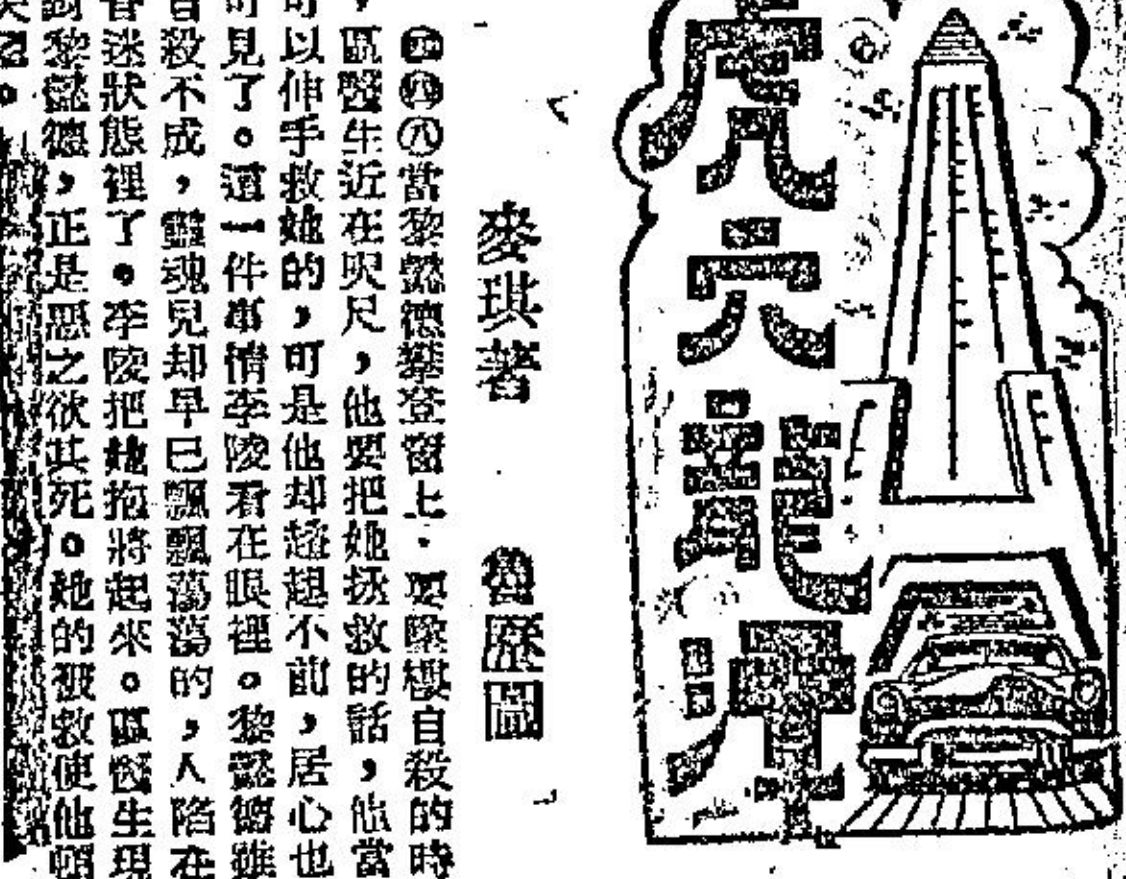 龍
麥琪著 歷圖
當黎懿德攀登窗上．要墜樓自殺的時
，區醫生近在呎尺，他要把她拯救的話，他當
可以伸手救她的，可是他却趑趄不前，居心也
可見了。這一件事情李陵看在眼裡。黎懿德雖
自殺不成，靈魂兒却早已飄飄蕩蕩的，人陷在
昏迷狀態裡了。李陵把她抱將起來。區醫生現
對黎懿德，正是惡之欲其死。她的被救使他頓